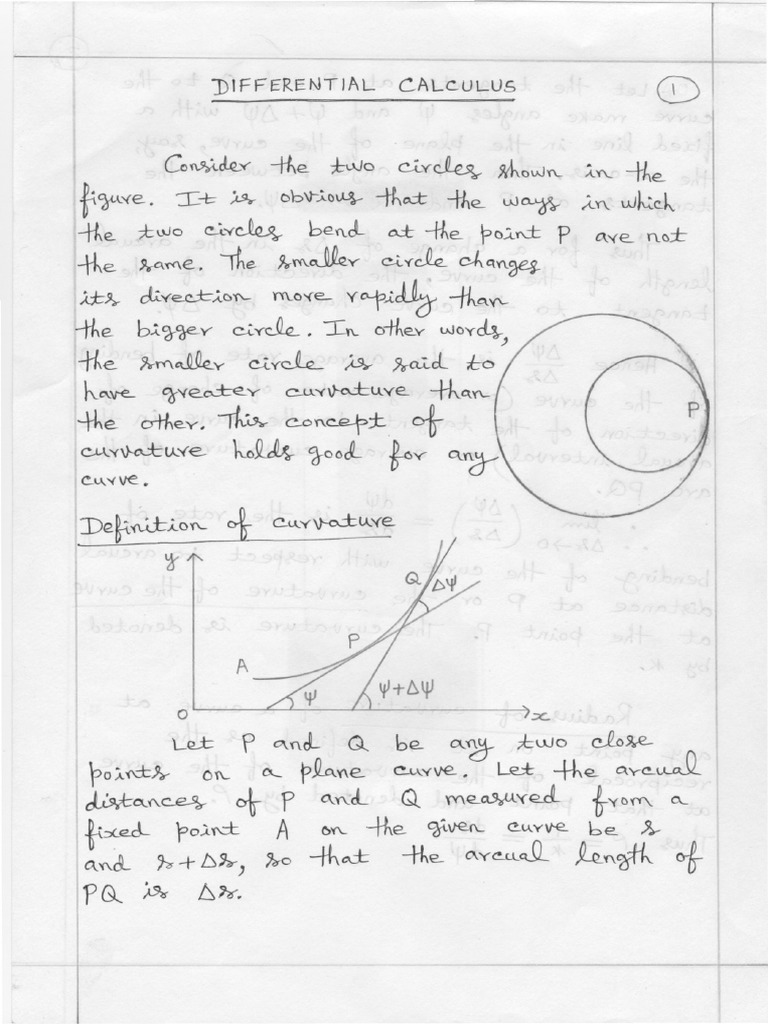 DIFFERENTIAL CALCULUS
1
Consider the two circles shown in the
figure. It is obvious that the ways in which
the two circles bend at the point P are not
the same. The smaller circle changes
its direction more rapidly than
the bigger circle. In other words,
the smaller circle is said to
have greater curvature than
the other. This concept of
curvature holds good for any
curve.
P
Definition of curvature
y
Q
Δψ
P
A
ψ
ψ+Δψ
O
x
Let P and Q be any two close
points on a plane curve. Let the arcual
distances of P and Q measured from a
fixed point A on the given curve be s
and s+Δs, so that the arcual length of
PQ is Δs.